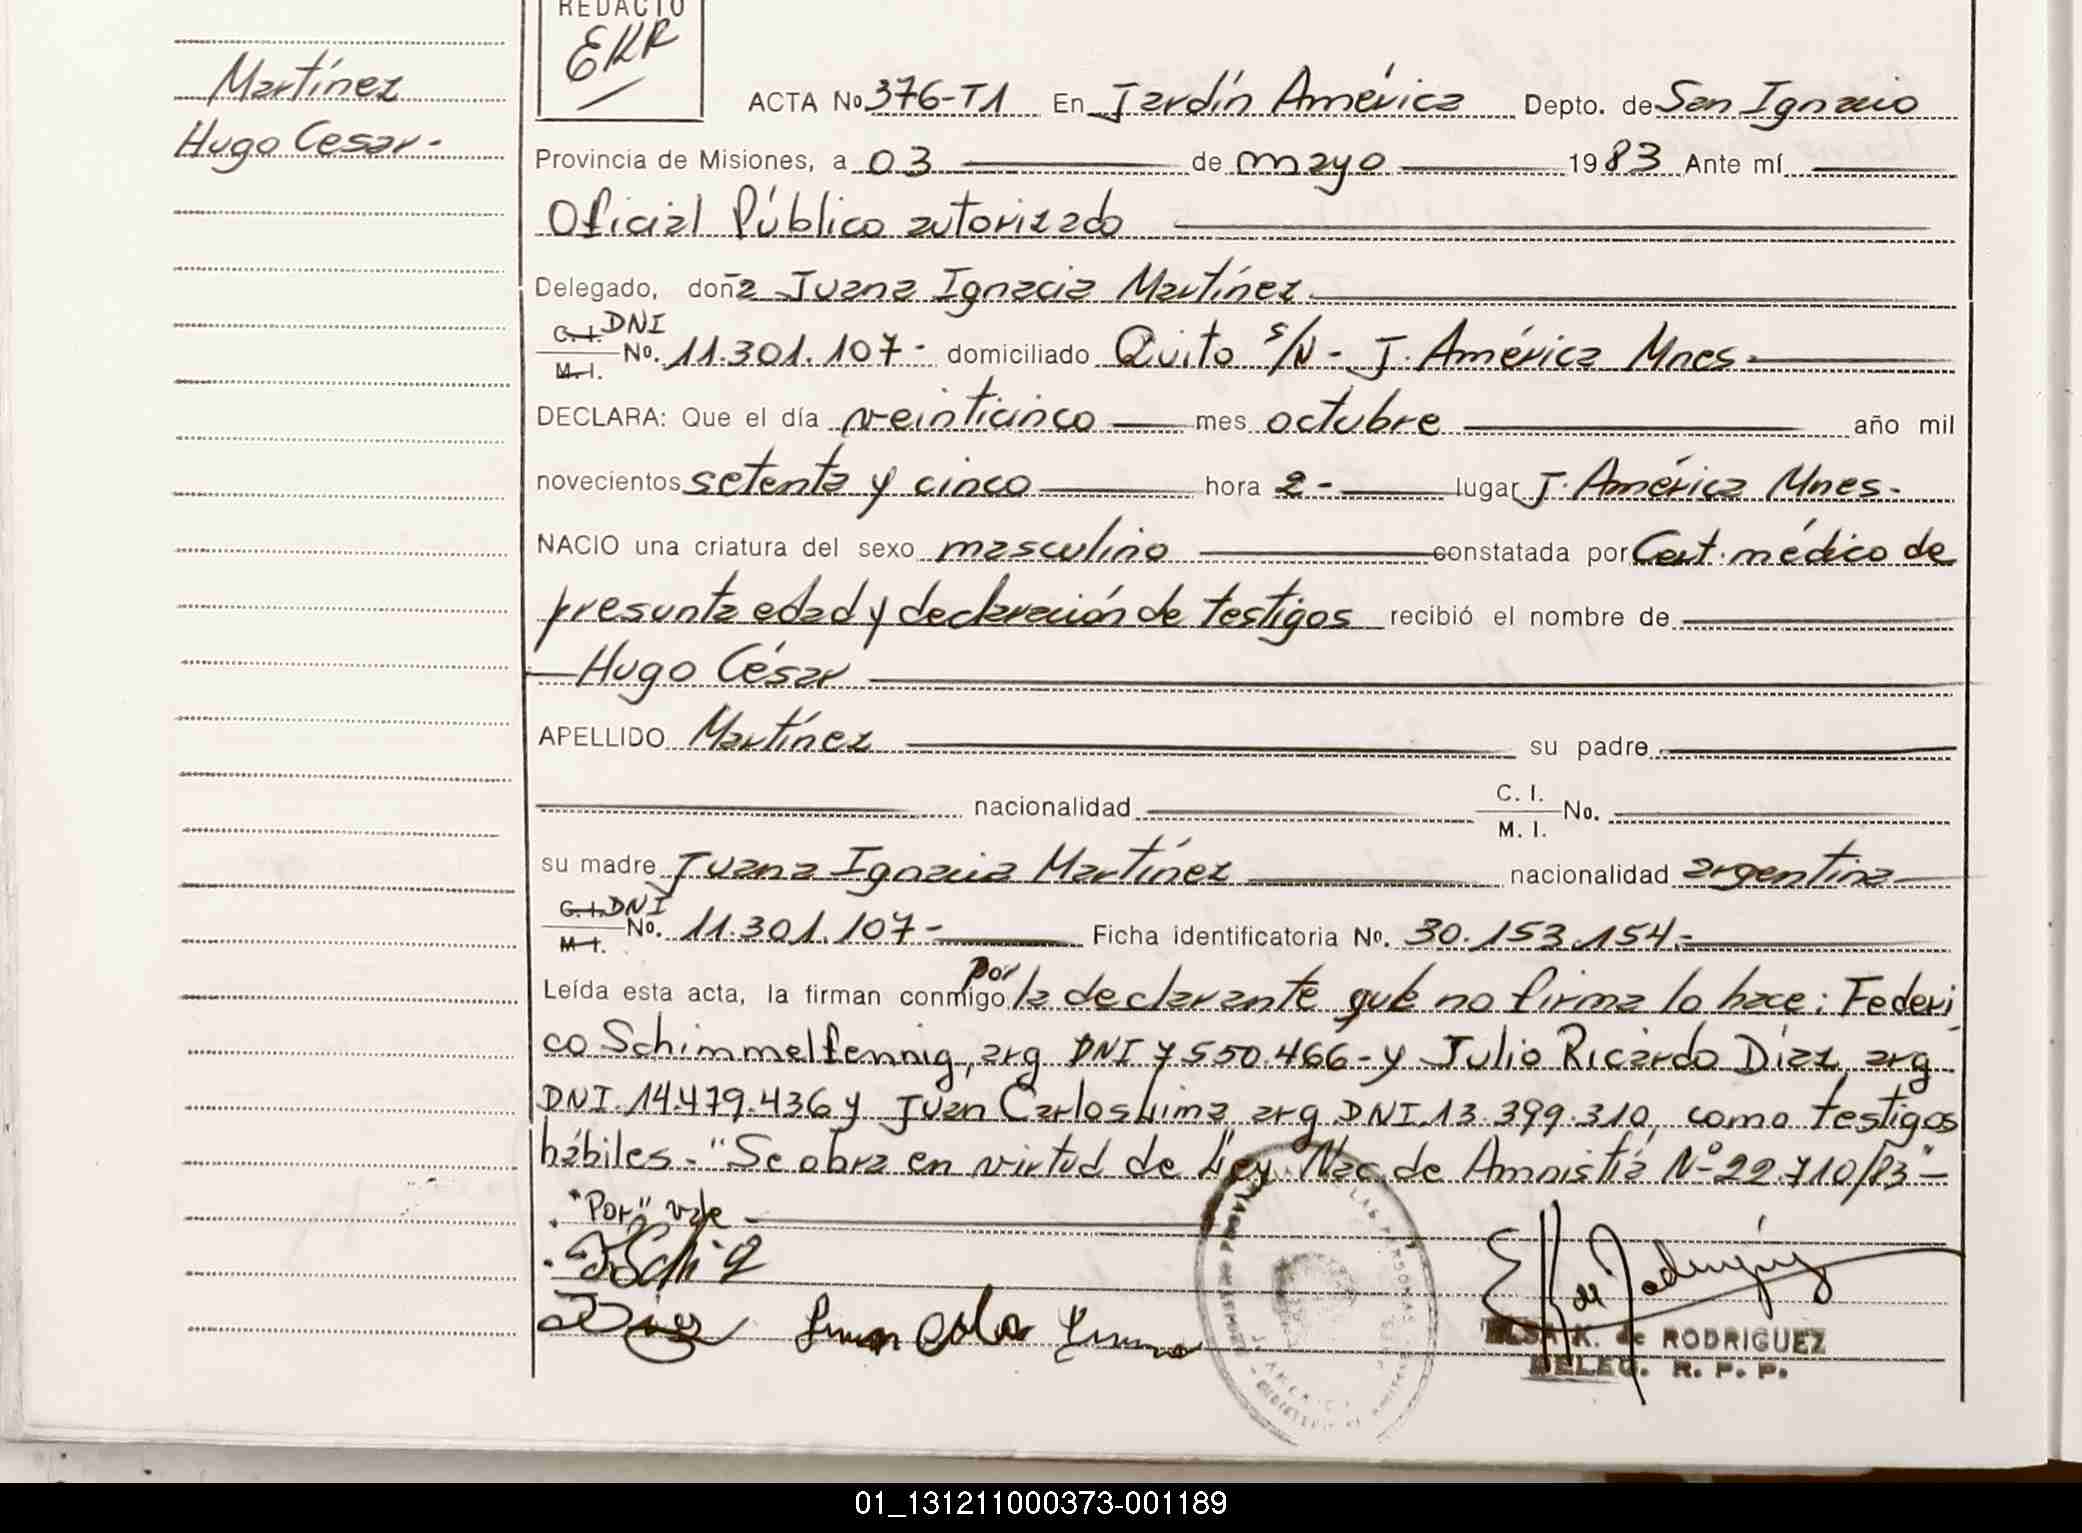 REDACTO
EKR
Martínez
Hugo Cesar-
ACTA No 376-T1 En Jardín América Depto. de San Ignacio
Provincia de Misiones, a 03 de mayo 1983 Ante mí
Oficial Público autorizado
Delegado, doña Juana Ignacia Martínez
C.I. DNI
M.I. No. 11.301.107- domiciliado Quito s/N- J. América Mnes-
DECLARA: Que el día veinticinco mes octubre año mil
novecientos setenta y cinco hora 2- lugar J. América Mnes-
NACIO una criatura del sexo masculino constatada por Cert. médico de
presunta edad y declaración de testigos recibió el nombre de
Hugo César
APELLIDO Martínez su padre
nacionalidad C. I. M. I. No.
su madre Juana Ignacia Martínez nacionalidad argentina
C.I. DNI
M.I. No. 11.301.107- Ficha identificatoria No. 30.153.154.-
Leída esta acta, la firman conmigo por la declarante que no firma lo hace: Federi
co Schimmelfennig, arg DNI 7550.466- y Julio Ricardo Díaz, arg
DNI. 14.479.436 y Juan Carlos Lima, arg DNI. 13.399.310, como testigos
hábiles.- "Se obra en virtud de Ley Nac. de Amnistía Nº 22.710/83"-
"Por" vale
Díaz
E K de Rodriguez
ELSA K. de RODRIGUEZ
DELEG. R. P. P.
01_131211000373-001189